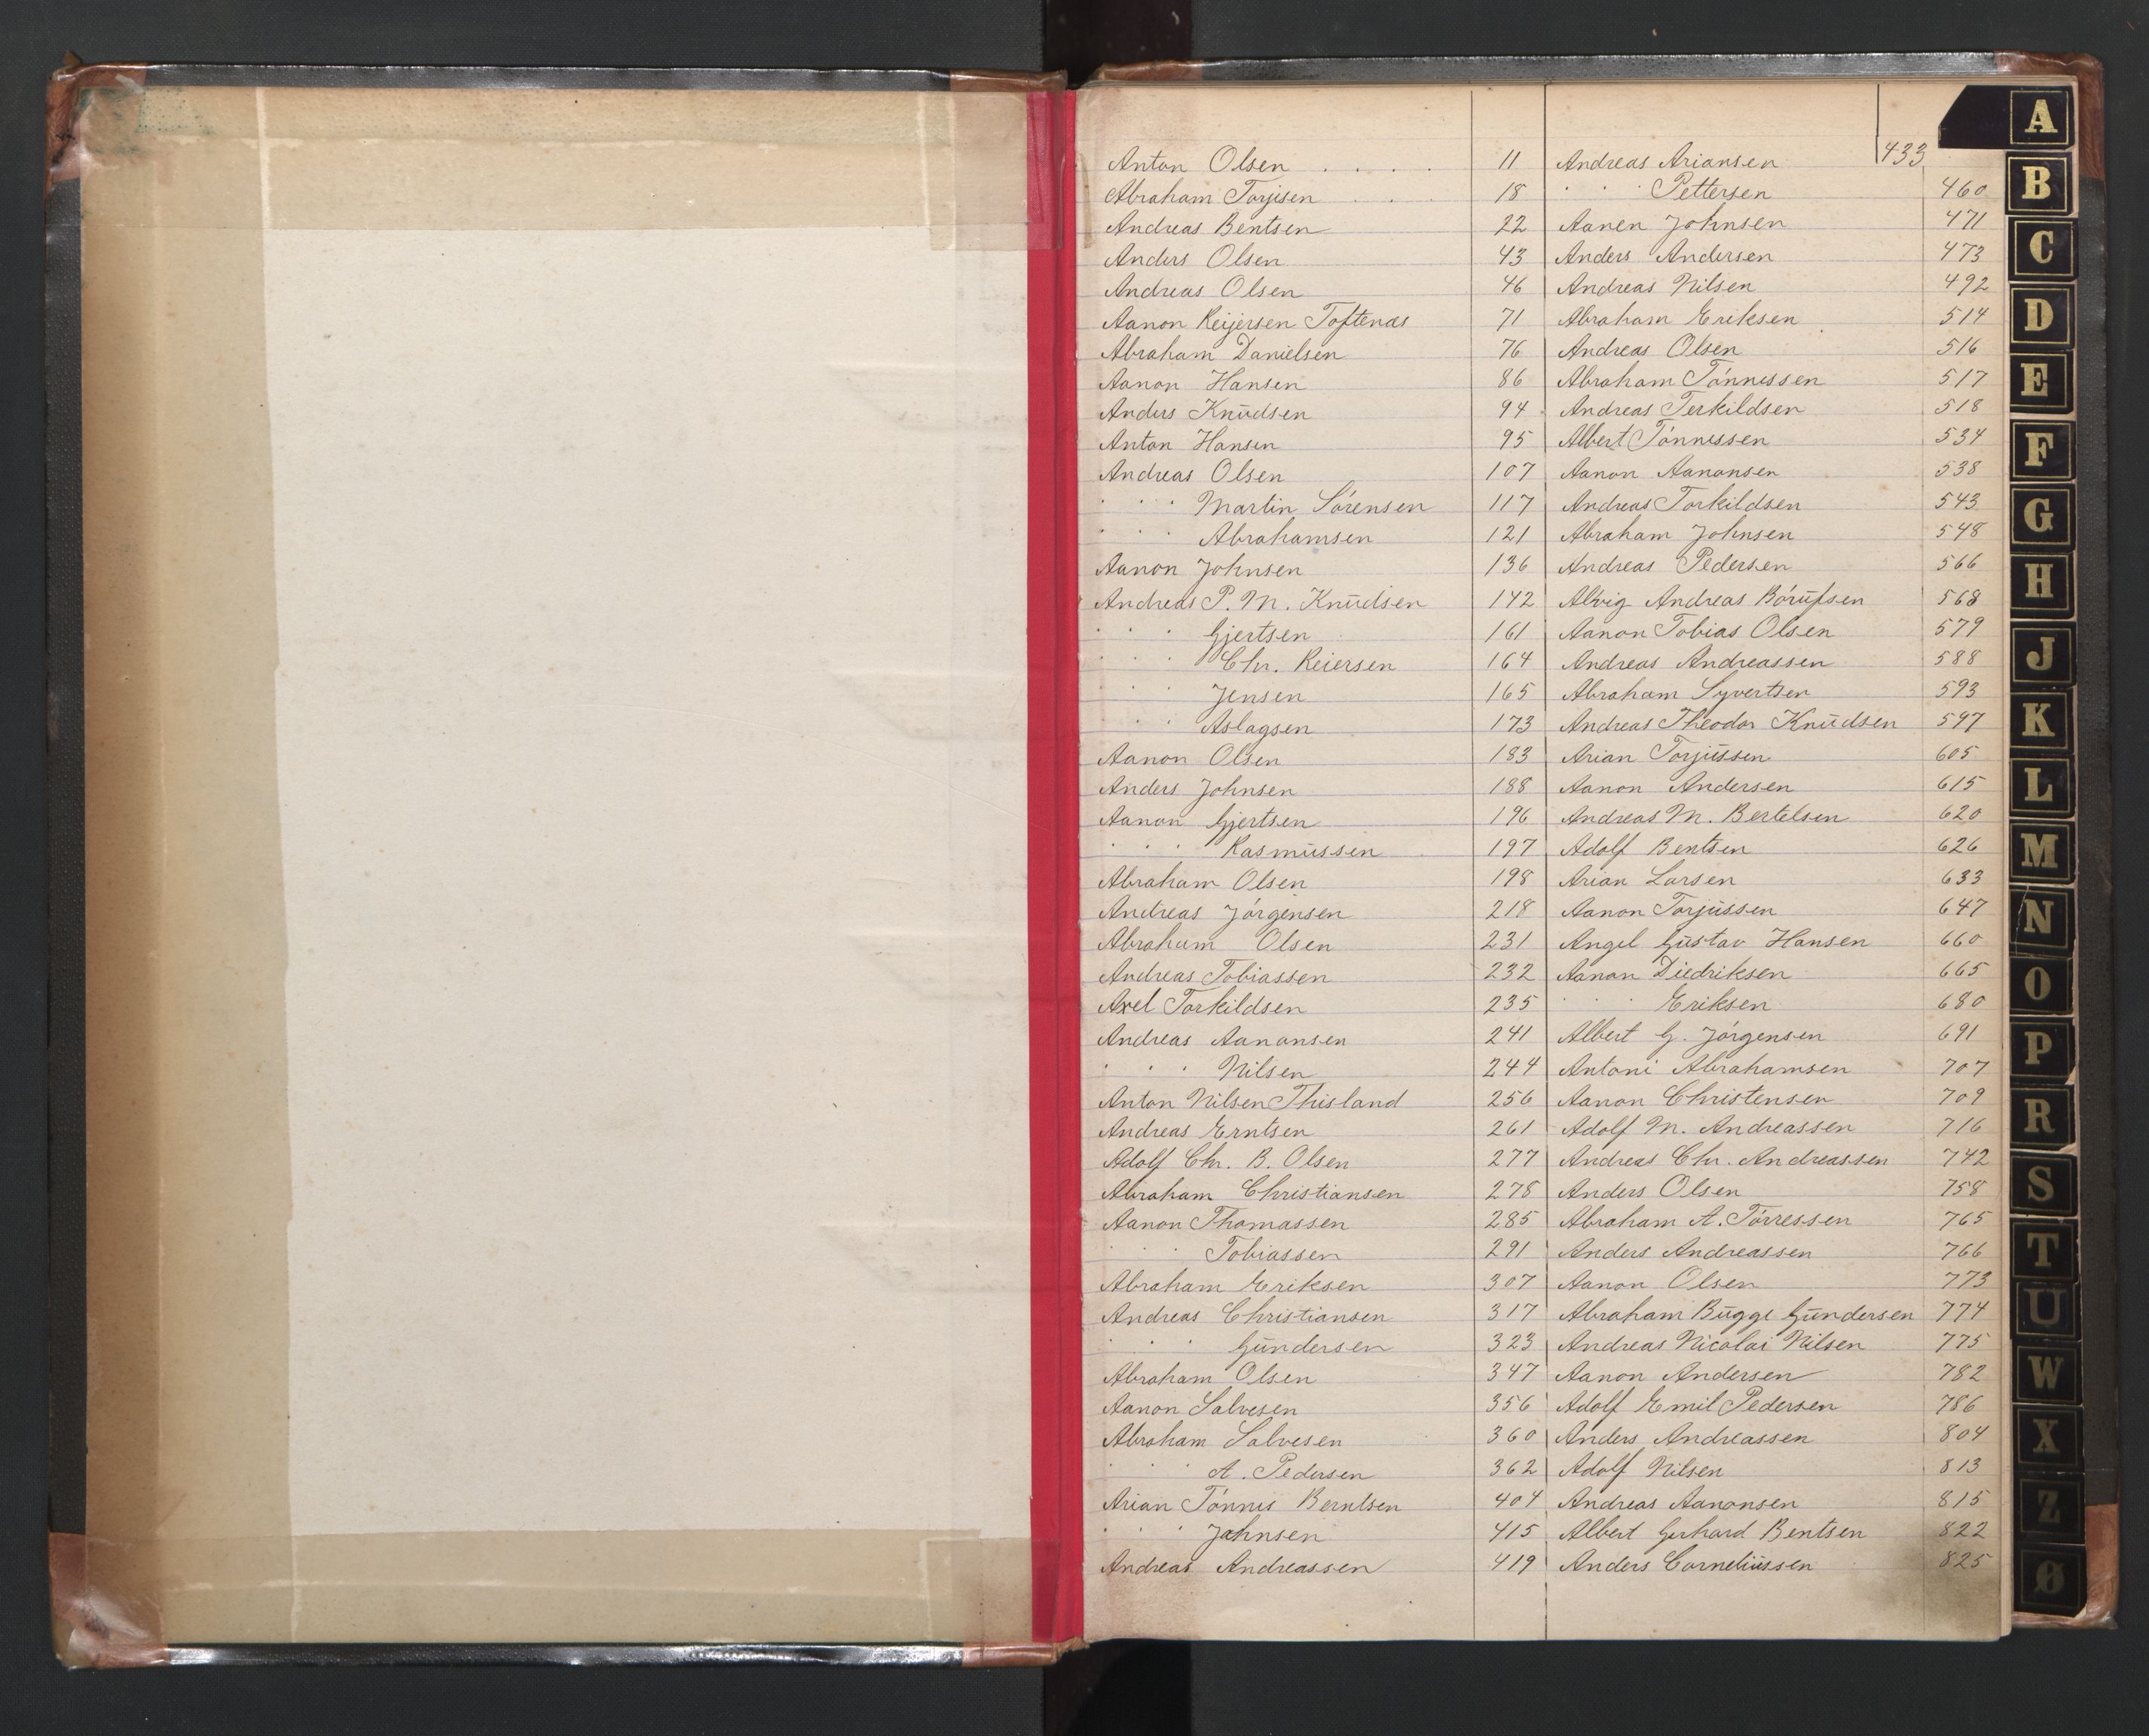 Anton Olsen . . . . 11
Abraham Torjisen . . . 18
Andreas Bentsen 22
Anders Olsen 43
Andreas Olsen 46
Aanon Reijersen Toftenæs 71
Abraham Danielsen 76
Aanon Hansen 86
Anders Knudsen 94
Anton Hansen 95
Andreas Olsen 107
" " " Martin Sörensen 117
" " " Abrahamsen 121
Aanon Johnsen 136
Andreas P. M. Knudsen 142
" " " Gjertsen 161
" " " Chr. Reiersen 164
" " Jensen 165
" " Aslagsen 173
Aanon Olsen 183
Anders Johnsen 188
Aanon Gjertsen 196
" " " Rasmussen 197
Abraham Olsen 198
Andreas Jörgensen 218
Abraham Olsen 231
Andreas Tobiassen 232
Axel Torkildsen 235
Andreas Aanonsen 241
" " " Nilsen 244
Anton Nilsen Thisland 256
Andreas Erntsen 261
Adolf Chr. B. Olsen 277
Abraham Christiansen 278
Aanon Thomassen 285
" " " Tobiassen 291
Abraham Eriksen 307
Andreas Christiansen 317
" " " Gundersen 323
Abraham Olsen 347
Aanon Salvesen 356
Abraham Salvesen 360
" " " A. Pedersen 362
Arian Tönnes Berntsen 404
" " " Johnsen 415
Andreas Andreassen 419
Andreas Ariansen 433
" " " Pettersen 460
Aanen Johnsen 471
Anders Andersen 473
Andreas Nilsen 492
Abraham Eriksen 514
Andreas Olsen 516
Abraham Tönnessen 517
Andreas Terkildsen 518
Albert Tönnessen 534
Aanon Aanonsen 538
Andreas Torkildsen 543
Abraham Johnsen 548
Andreas Pedersen 566
Alvig Andreas 568
Aanon Tobias Olsen 579
Andreas Andreassen 588
Abraham Syvertsen 593
Andreas Theodor Knudsen 597
Arian Torjussen 605
Aanon Andersen 615
Andreas M. Bertelsen 620
Adolf Bentsen 626
Arian Larsen 633
Aanon Torjussen 647
Angel Gustav Hansen 660
Aanon Diedriksen 665
" " " Eriksen 680
Albert G. Jörgensen 691
Antoni Abrahamsen 707
Aanon Christensen 709
Adolf M. Andreassen 716
Andreas Chr. Andreassen 742
Anders Olsen 758
Abraham A. Törressen 765
Anders Andreassen 766
Aanon Olsen 773
Abraham Bugge Gundersen 774
Andreas Nicolai Nilsen 775
Aanon Andersen 782
Adolf Emil Pedersen 786
Anders Andreassen 804
Adolf Nilsen 813
Andreas Aanonsen 815
Albert Gerhard Bentsen 822
Anders Corneliussen 825
A
B
C
D
E
F
G
H
J
K
L
M
N
O
P
R
S
T
U
W
X
Z
Ø